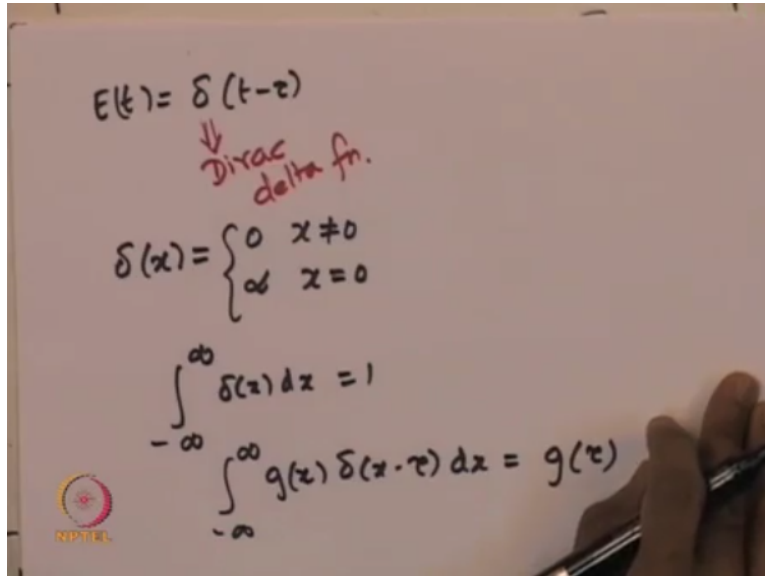 E(t) = δ (t-τ)
⇓
Dirac
delta fn.
δ(x) = { 0  x ≠ 0
∞  x = 0
∫_{-∞}^{∞} δ(x) dx = 1
∫_{-∞}^{∞} g(x) δ(x-τ) dx = g(τ)
NPTEL